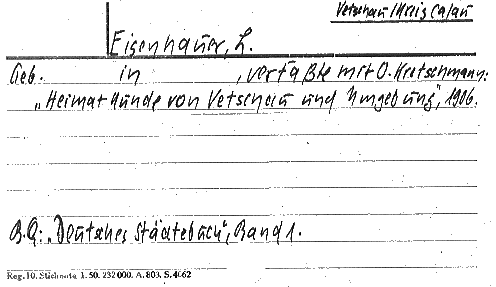 Vetschau/Kreis Calau
Eisenhauer, L.
Geb. in , verfaßte mit O. Kretschmann:
„Heimatkunde von Vetschau und Umgebung", 1906.
B.Q.: „Deutsches Städtebuch", Band 1.
Reg. 10. Stichworte. 1. 50. 232000. A. 803. S. 4662